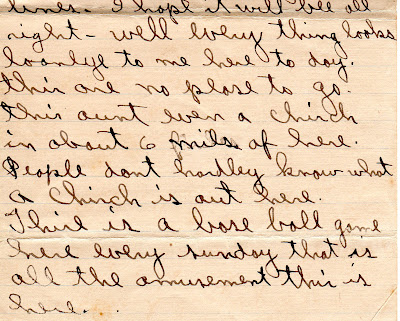 lines. I hope it will bee all
right - well every thing looks
loanlye to me here to day.
this are no plase to go.
this aunt even a church
in about 6 miles of here.
People dont hardley know what
a Church is out here.
Thire is a base ball game
here every sunday that is
all the amusement this is
here.